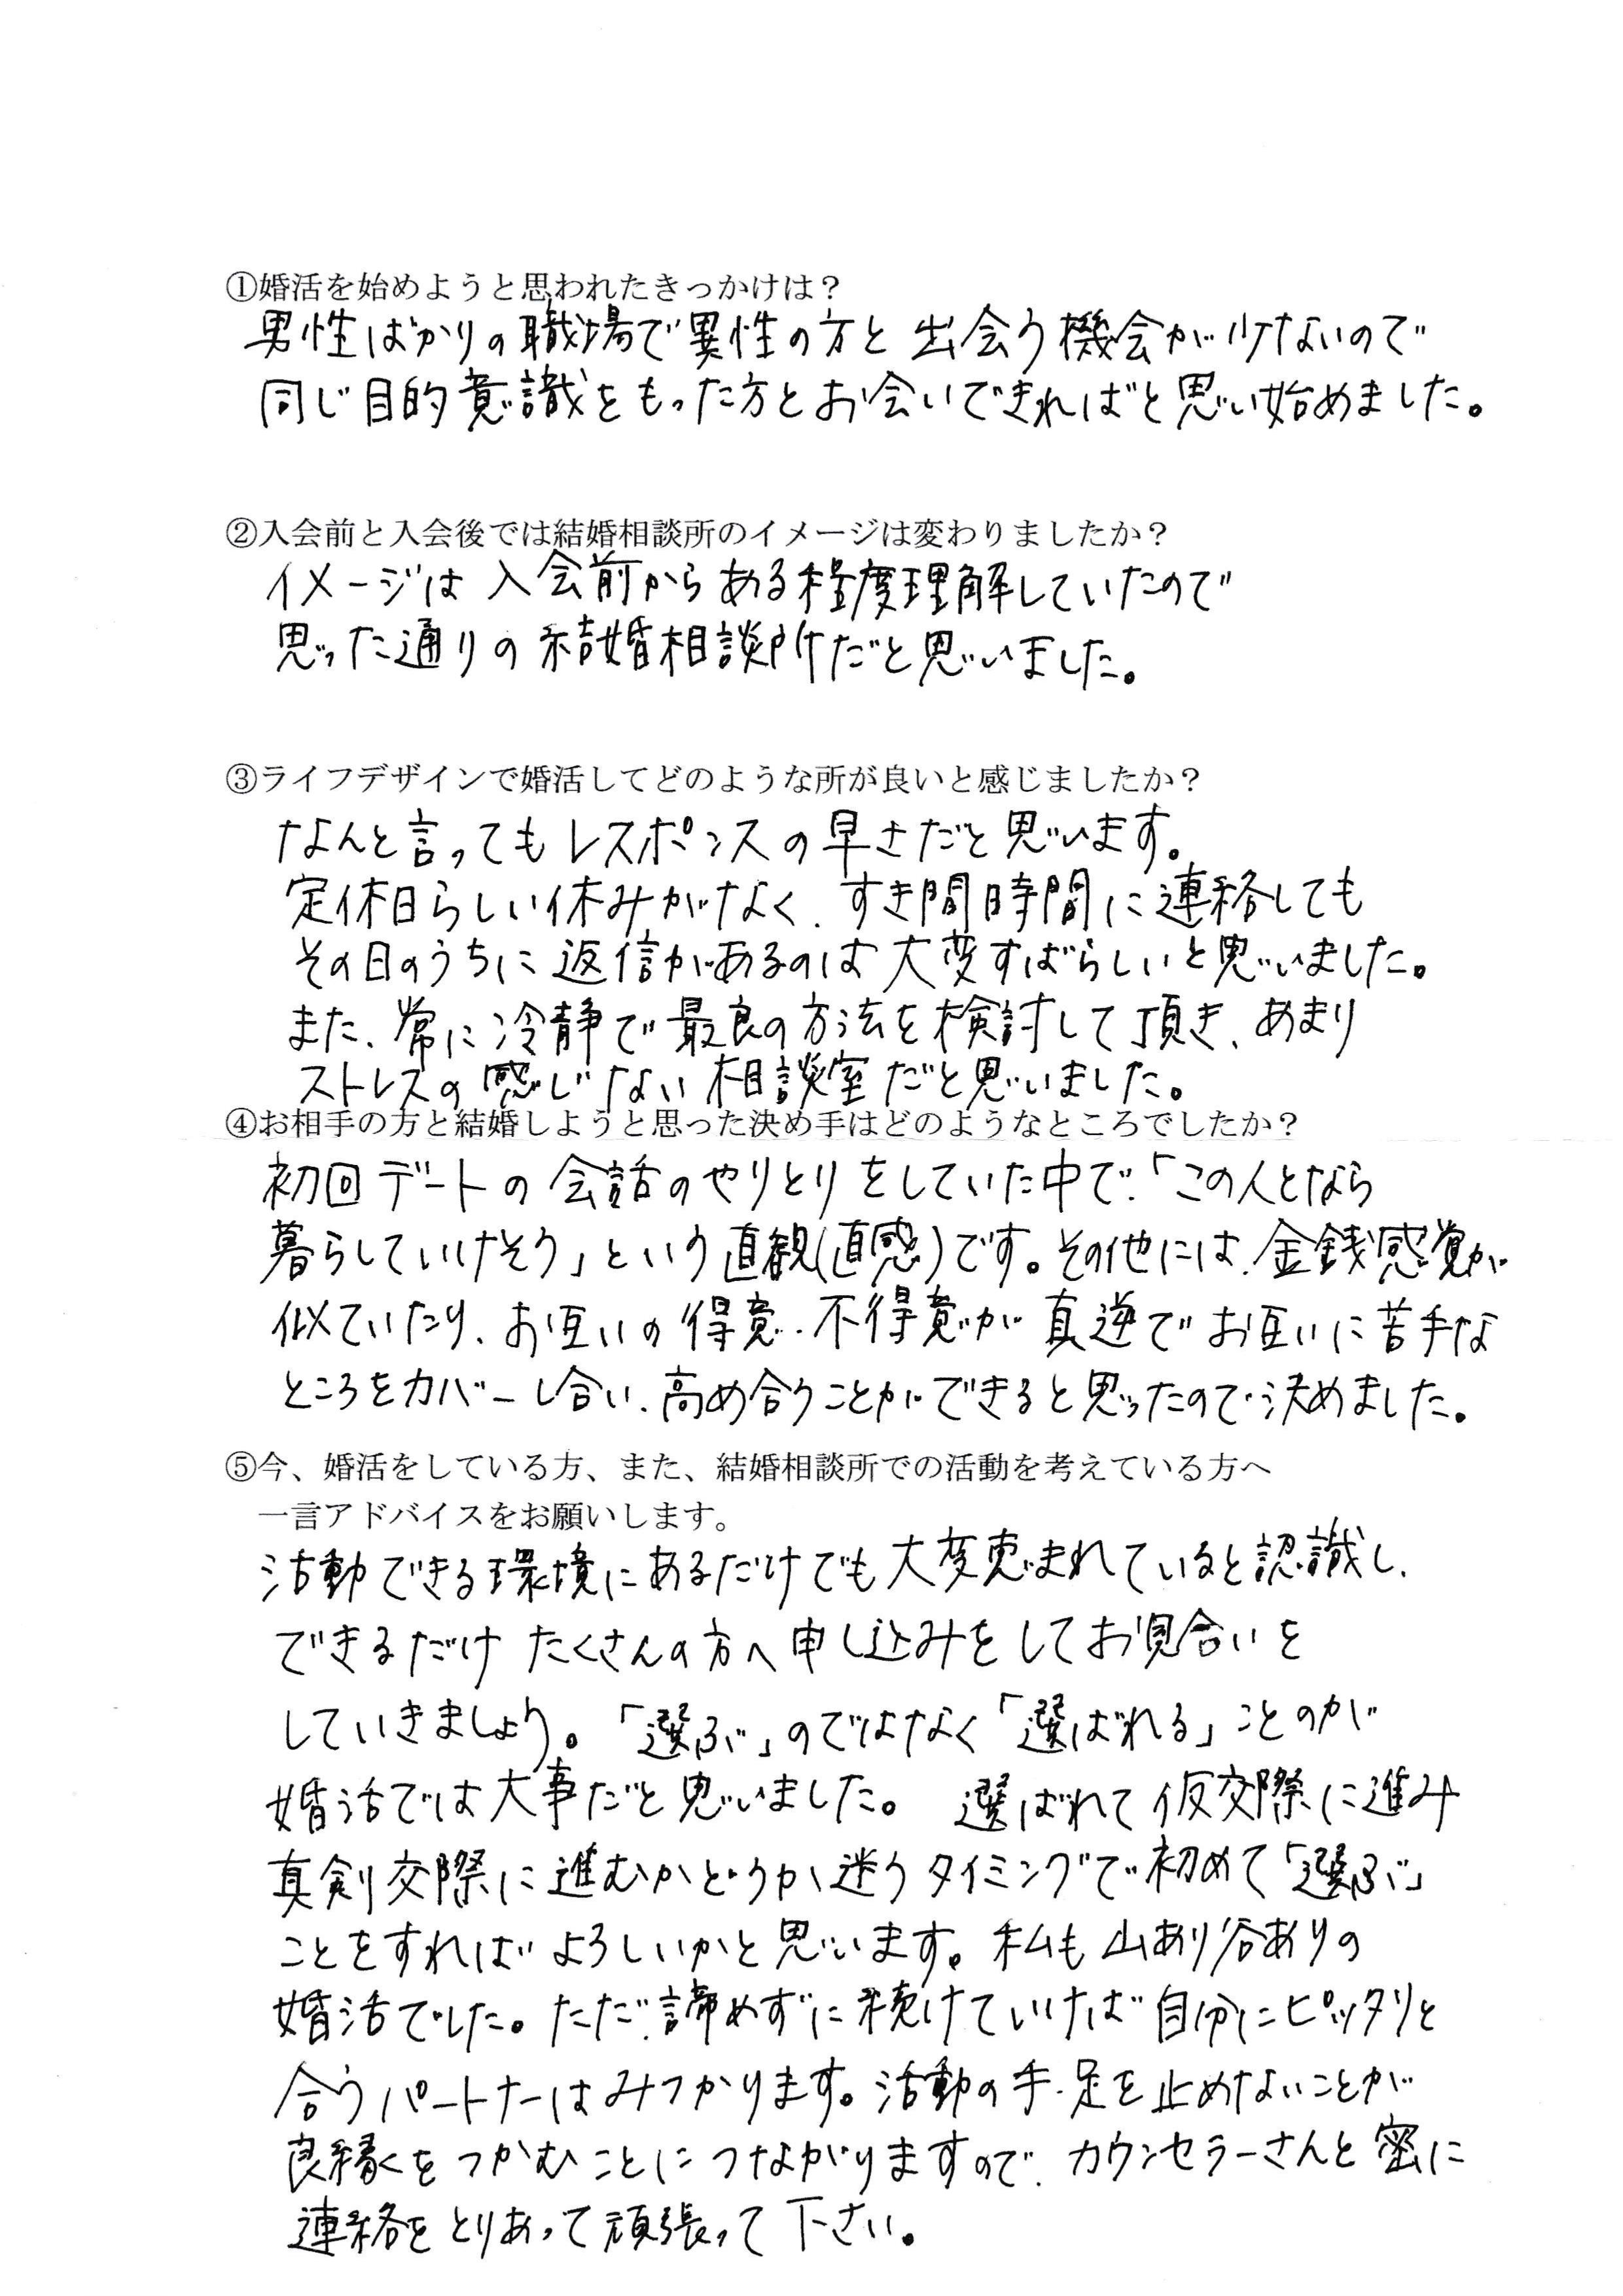 ①婚活を始めようと思われたきっかけは？
男性ばかりの職場で異性の方と出会う機会が少ないので
同じ目的意識をもった方とお会いできればと思い始めました。
②入会前と入会後では結婚相談所のイメージは変わりましたか？
イメージは入会前からある程度理解していたので
思った通りの結婚相談所だと思いました。
③ライフデザインで婚活してどのような所が良いと感じましたか？
なんと言ってもレスポンスの早さだと思います。
定休日らしい休みがなく、すき間時間に連絡しても
その日のうちに返信があるのは大変すばらしいと思いました。
また、常に冷静で最良の方法を検討して頂き、あまり
ストレスの感じない相談室だと思いました。
④お相手の方と結婚しようと思った決め手はどのようなところでしたか？
初回デートの会話のやりとりをしていた中で、「この人となら
暮らしていけそう」という直観(直感)です。その他には、金銭感覚が
似ていたり、お互いの得意・不得意が真逆でお互いに苦手な
ところをカバーし合い、高め合うことができると思ったので決めました。
⑤今、婚活をしている方、また、結婚相談所での活動を考えている方へ
一言アドバイスをお願いします。
活動できる環境にあるだけでも大変恵まれていると認識し、
できるだけたくさんの方へ申し込みをしてお見合いを
していきましょう。「選ぶ」のではなく「選ばれる」ことのが
婚活では大事だと思いました。選ばれて仮交際に進み
真剣交際に進むかどうか迷うタイミングで初めて「選ぶ」
ことをすればよろしいかと思います。私も山あり谷ありの
婚活でした。ただ、諦めずに続けていけば自分にピッタリと
合うパートナーはみつかります。活動の手・足を止めないことが
良縁をつかむことにつながりますので、カウンセラーさんと密に
連絡をとりあって頑張って下さい。